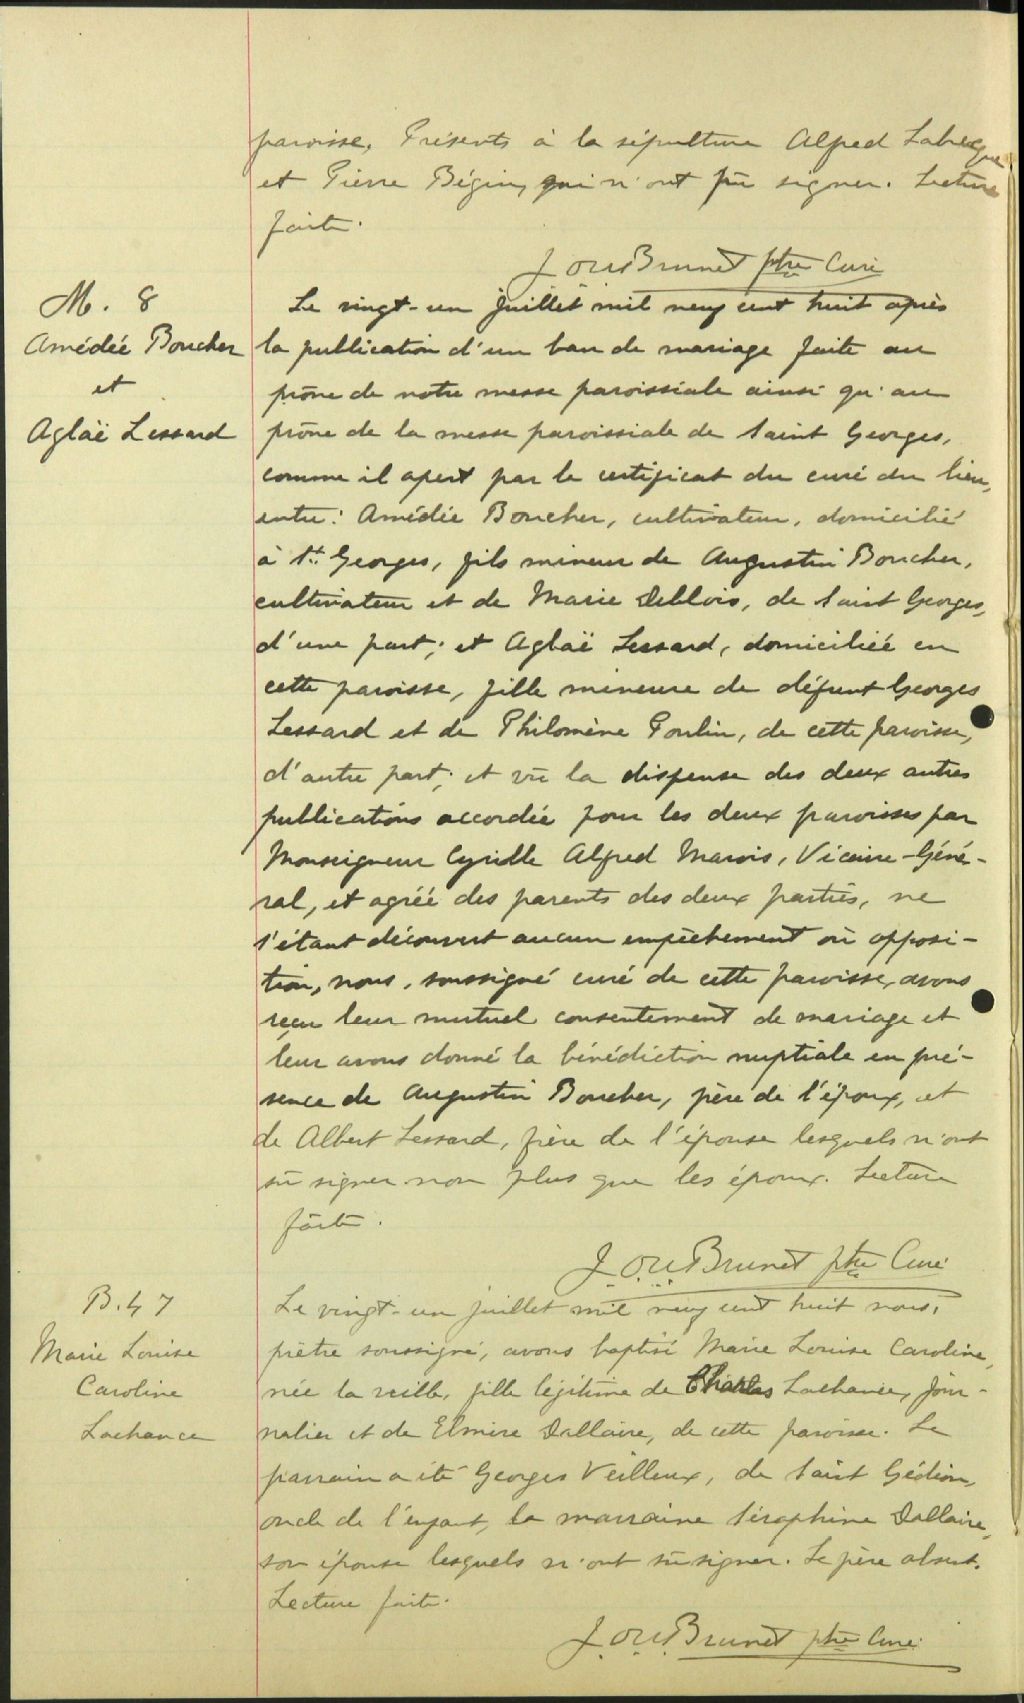 paroisse. Présents à la sépulture Alfred Labrecque
et Pierre Bégin, qui n'ont pu signer. Lecture
faite.
J. O. U. Brunet ptre Curé
M. 8
Amédée Boucher
et
Aglaë Lessard
Le vingt-un juillet mil neuf cent huit après
la publication d'un ban de mariage faite au
prône de notre messe paroissiale ainsi qu'au
prône de la messe paroissiale de Saint Georges,
comme il apert par le certificat du curé du lieu,
entre: Amédée Boucher, cultivateur, domicilié
à St. Georges, fils mineur de Augustin Boucher,
cultivateur et de Marie Deblois, de Saint Georges,
d'une part; et Aglaë Lessard, domiciliée en
cette paroisse, fille mineure de défunt Georges
Lessard et de Philomène Poulin, de cette paroisse,
d'autre part; et vu la dispense des deux autres
publications accordée pour les deux paroisses par
Monseigneur Cyrille Alfred Marois, Vicaire-Géné-
ral, et agréé des parents des deux parties, ne
s'étant découvert aucun empêchement ou opposi-
tion, nous, soussigné curé de cette paroisse, avons
reçu leur mutuel consentement de mariage et
leur avons donné la bénédiction nuptiale en pré-
sence de Augustin Boucher, père de l'époux, et
de Albert Lessard, frère de l'épouse lesquels n'ont
su signer non plus que les époux. Lecture
faite.
J. O. U. Brunet ptre Curé
B. 47
Marie Louise
Caroline
Lachance
Le vingt-un juillet mil neuf cent huit nous,
prêtre soussigné, avons baptisé Marie Louise Caroline,
née la veille, fille légitime de Charles Lachance, jour-
nalier et de Elmire Dallaire, de cette paroisse. Le
parrain a été Georges Veilleux, de Saint Gédéon,
oncle de l'enfant, la marraine Séraphine Dallaire,
son épouse lesquels n'ont su signer. Le père absent.
Lecture faite.
J. O. U. Brunet ptre Curé